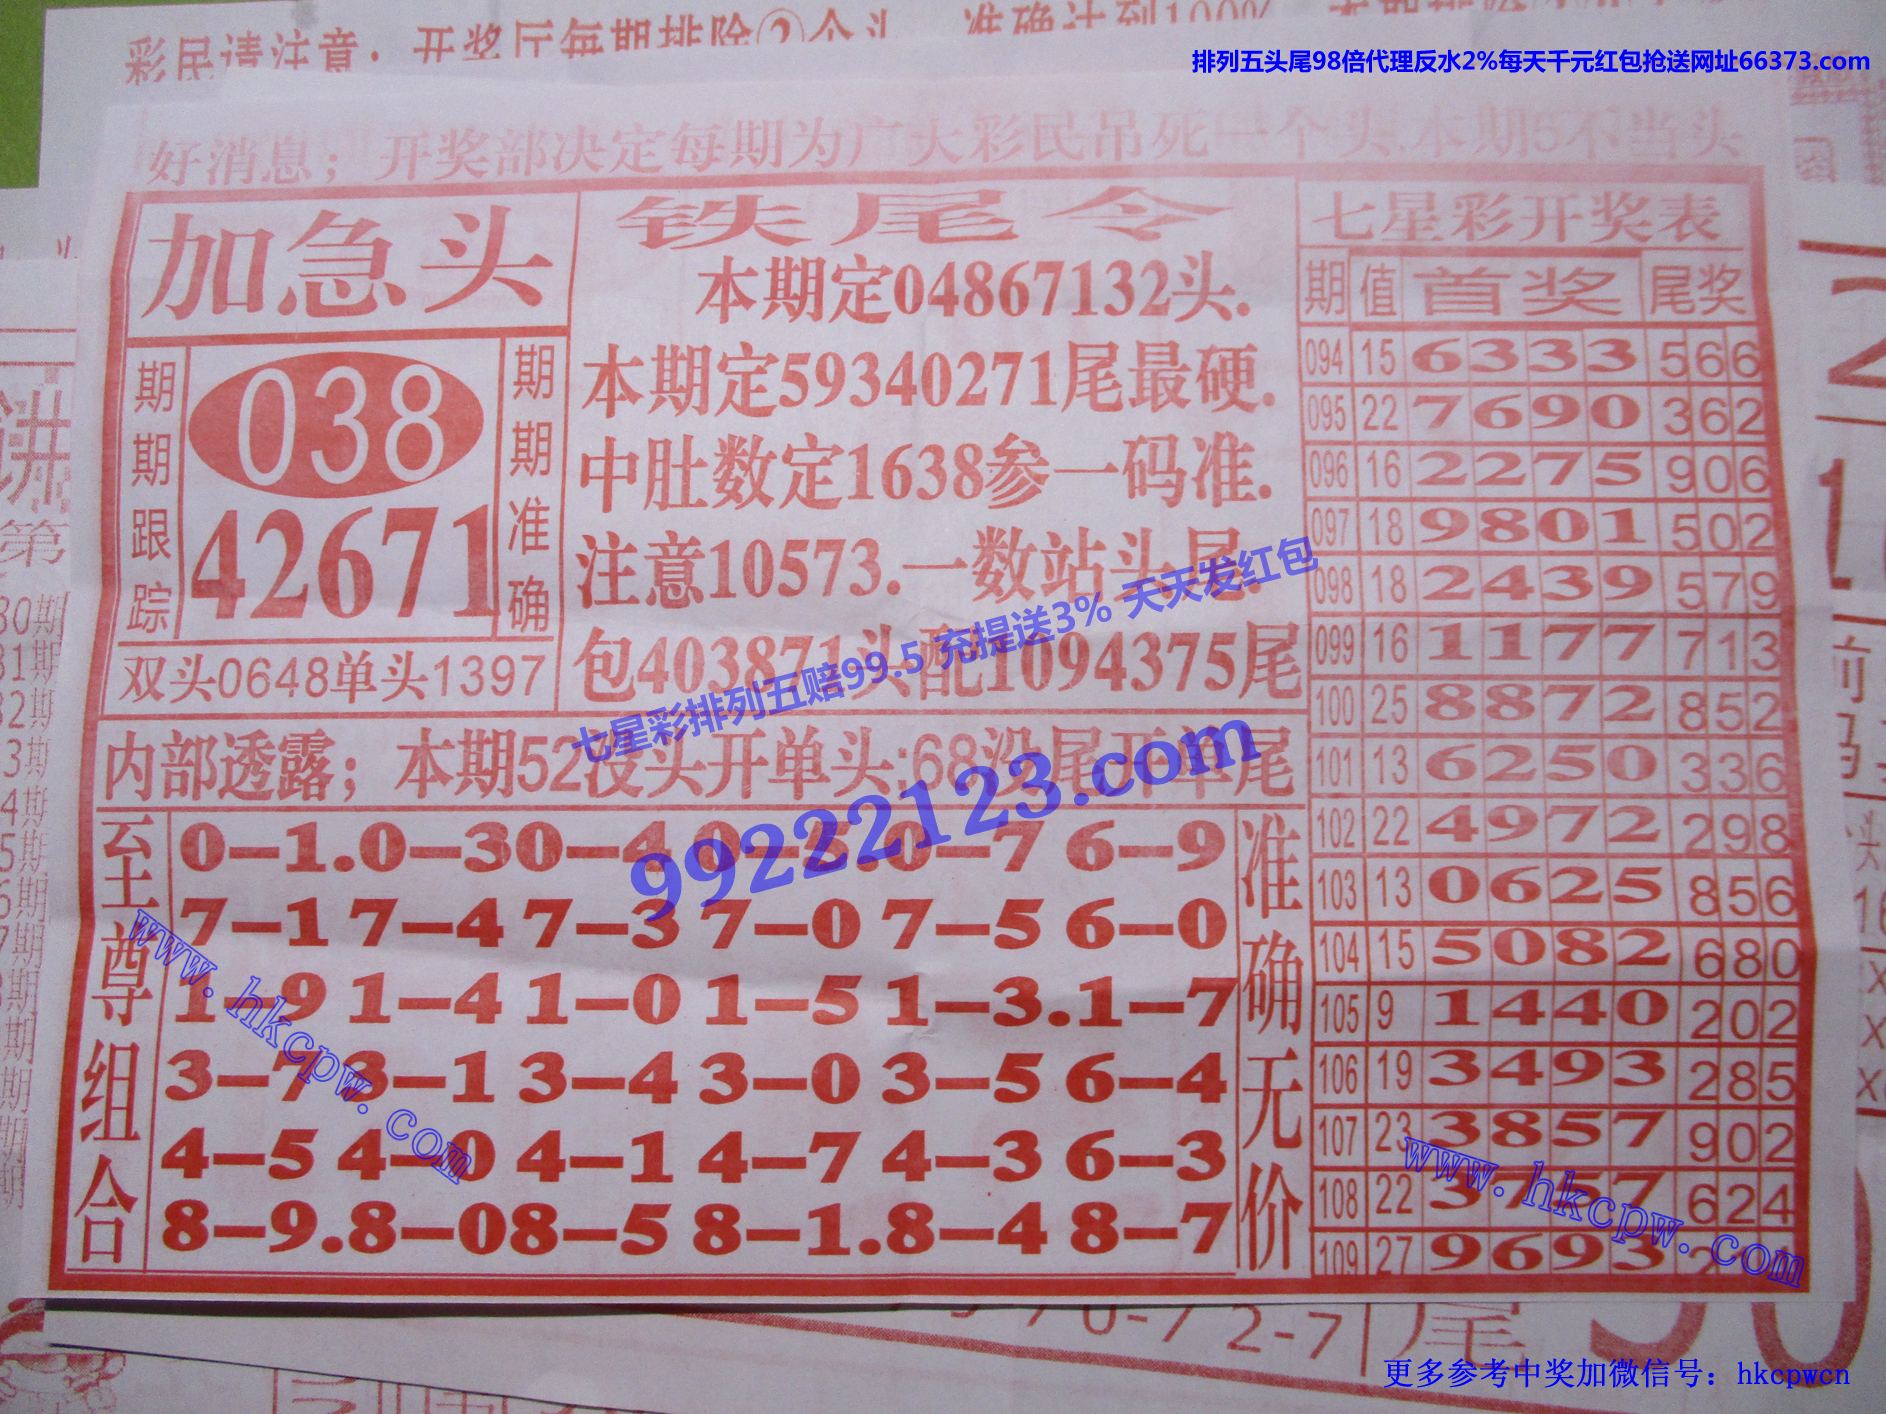 排列五头尾98倍代理反水2%每天千元红包抢送网址66373.com
彩民请注意：开奖厅每期排除②个头
准确达到100%
好消息；开奖部决定每期为广大彩民吊死一个头.本期5不当头
加急头
期期跟踪
038
42671
期期准确
双头0648单头1397
铁尾令
本期定04867132头.
本期定59340271尾最硬.
中肚数定1638参一码准.
注意10573.一数站头尾.
包403871头配1094375尾
内部透露；本期52没头开单头:68没尾开单尾
至尊组合
0-1.0-30-4 0-5.0-7 6-9
7-1 7-4 7-3 7-0 7-5 6-0
1-9 1-4 1-0 1-5 1-3.1-7
3-7 3-1 3-4 3-0 3-5 6-4
4-5 4-0 4-1 4-7 4-3 6-3
8-9.8-08-5 8-1.8-4 8-7
准确无价
七星彩开奖表
期 值 首奖 尾奖
094 15 6333 566
095 22 7690 362
096 16 2275 906
097 18 9801 502
098 18 2439 579
099 16 1177 713
100 25 8872 852
101 13 6250 336
102 22 4972 298
103 13 0625 856
104 15 5082 680
105 9 1440 202
106 19 3493 285
107 23 3857 902
108 22 3757 624
109 27 9693
七星彩排列五赔99.5 充提送3% 天天发红包
99222123.com
www.hkcpw.com
www.hkcpw.com
更多参考中奖加微信号：hkcpwcn